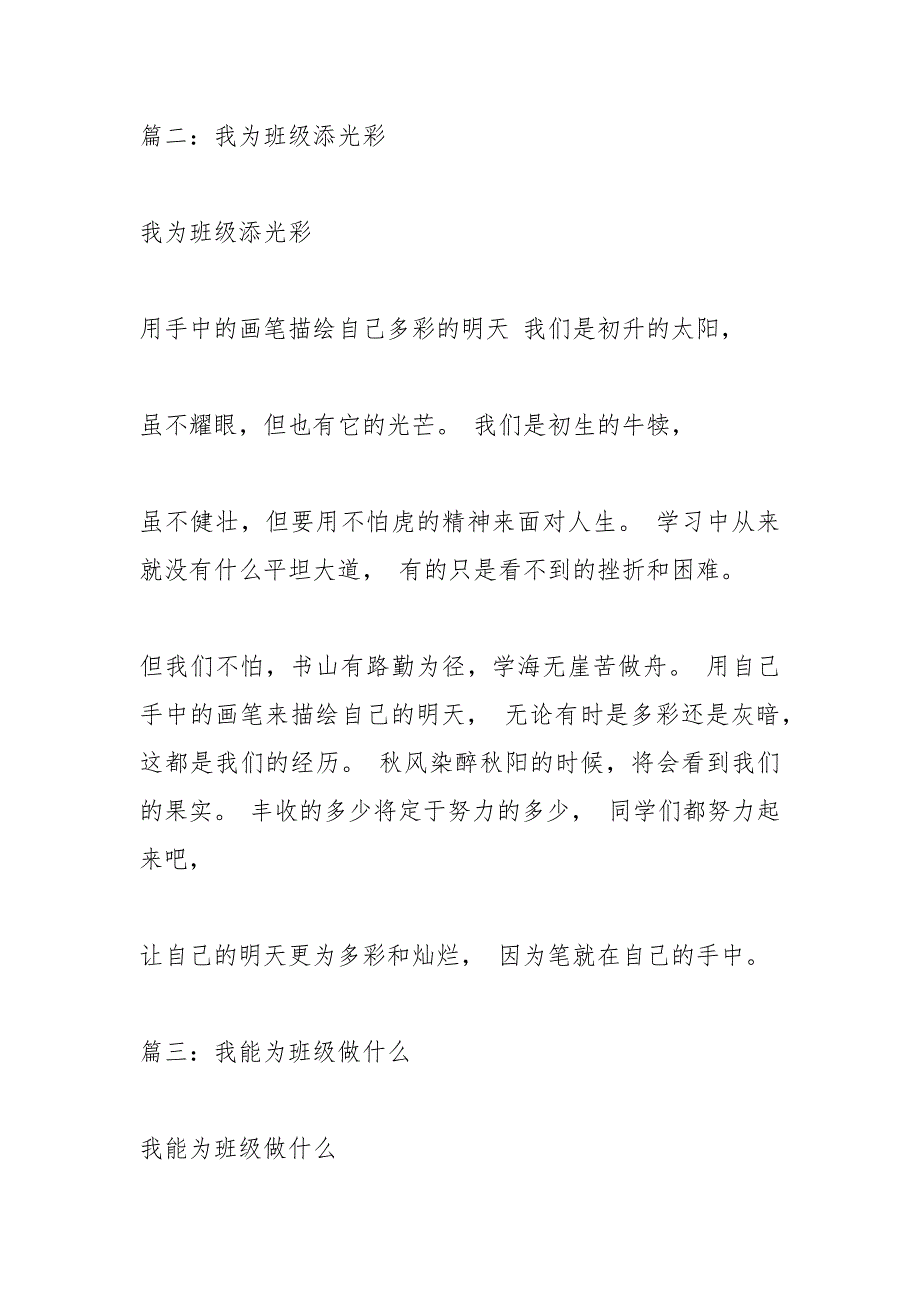 篇二：我为班级添光彩
我为班级添光彩
用手中的画笔描绘自己多彩的明天 我们是初升的太阳，
虽不耀眼，但也有它的光芒。 我们是初生的牛犊，
虽不健壮，但要用不怕虎的精神来面对人生。 学习中从来
就没有什么平坦大道， 有的只是看不到的挫折和困难。
但我们不怕，书山有路勤为径，学海无崖苦做舟。 用自己
手中的画笔来描绘自己的明天， 无论有时是多彩还是灰暗，
这都是我们的经历。 秋风染醉秋阳的时候，将会看到我们
的果实。 丰收的多少将定于努力的多少， 同学们都努力起
来吧，
让自己的明天更为多彩和灿烂， 因为笔就在自己的手中。
篇三：我能为班级做什么
我能为班级做什么